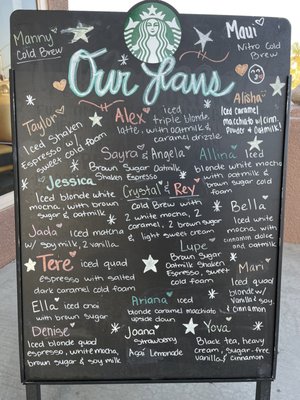 Manny
Cold Brew
Maui
Nitro Cold
Brew
Our Favs
Taylor
Iced Shaken
Espresso w/
sweet cold foam
Alex iced
triple blonde
latte, with oatmilk &
caramel drizzle
Alisha
Iced caramel
macchiato w/ cinn.
powder & oatmilk
Sayra & Angela
Brown Sugar Oatmilk
Shaken Espresso
Allina iced
blonde white
mocha with
brown sugar cold
foam
Jessica
Iced blonde white
mocha, with brown
sugar & oatmilk
Crystal & Rey
Cold Brew with
2 white mocha, 2
caramel, 2 brown sugar
& light sweet cream
Bella
Iced white
mocha with
cinnamon dolce
and oatmilk
Jada Iced matcha
w/ soy milk, 2 vanilla
Lupe
Brown Sugar
Oatmilk Shaken
Espresso, sweet
cold foam
Tere iced quad
espresso with salted
dark caramel cold foam
Mari
Iced quad
blonde w/
vanilla
soy
& cinnamon
Ella iced chai
with brown sugar
Ariana iced
blonde caramel macchiato
upside down
Denise
Iced blonde quad
espresso, white mocha,
brown sugar & soy milk
Joana
Strawberry
Açaí Lemonade
Yova
Black tea, heavy
cream, sugar-free
vanilla & cinnamon